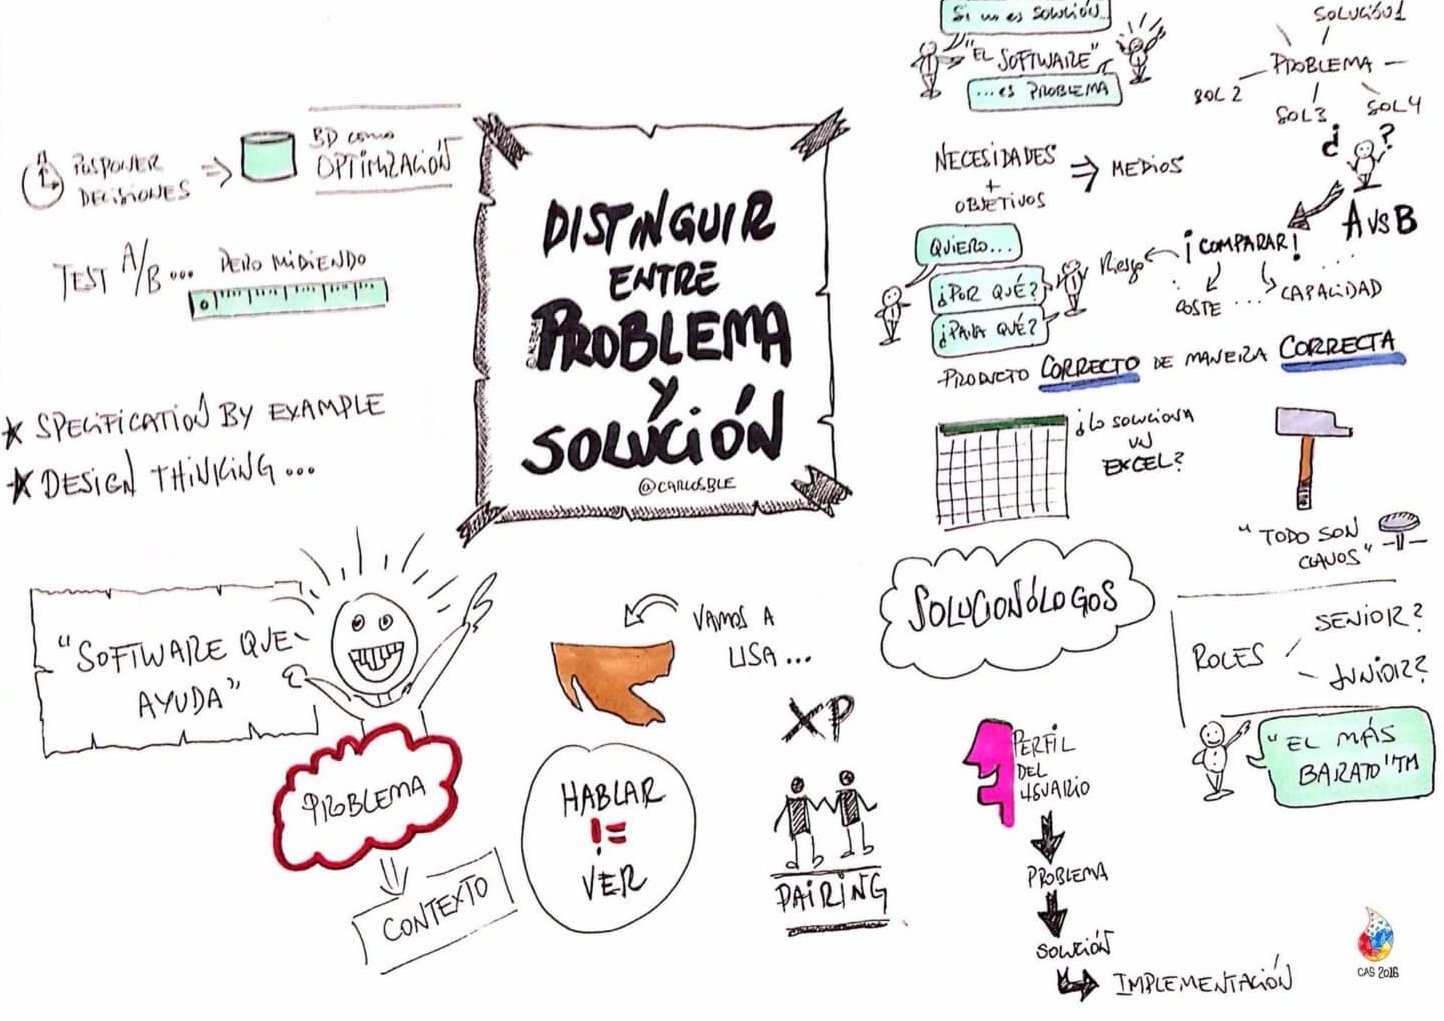 DISTINGUIR
ENTRE
PROBLEMA
Y
SOLUCIÓN
@CARLOSBLE
POSPONER
DECISIONES
BD como
OPTIMIZACIÓN
TEST A/B... PERO MIDIENDO
SPECIFICATION BY EXAMPLE
DESIGN THINKING...
"SOFTWARE QUE
AYUDA"
PROBLEMA
CONTEXTO
VAMOS A
LISA...
HABLAR
!=
VER
XP
PAIRING
Si no es solución...
"EL SOFTWARE"
...es PROBLEMA
SOLUCIÓN1
PROBLEMA
SOL 2
SOL3
SOL4
¿ ?
NECESIDADES
+
OBJETIVOS
MEDIOS
A vs B
QUIERO...
¿POR QUÉ?
¿PARA QUÉ?
Riesgo
¡COMPARAR!
COSTE ....
CAPACIDAD
-PRODUCTO CORRECTO DE MANERA CORRECTA
¿LO SOLUCIONA
UN
EXCEL?
"TODO SON
CLAVOS"
SOLUCIONÓLOGOS
ROLES
SENIOR?
JUNIOR?
"EL MÁS
BARATO"TM
PERFIL
DEL
USUARIO
PROBLEMA
SOLUCIÓN
IMPLEMENTACIÓN
CAS 2016